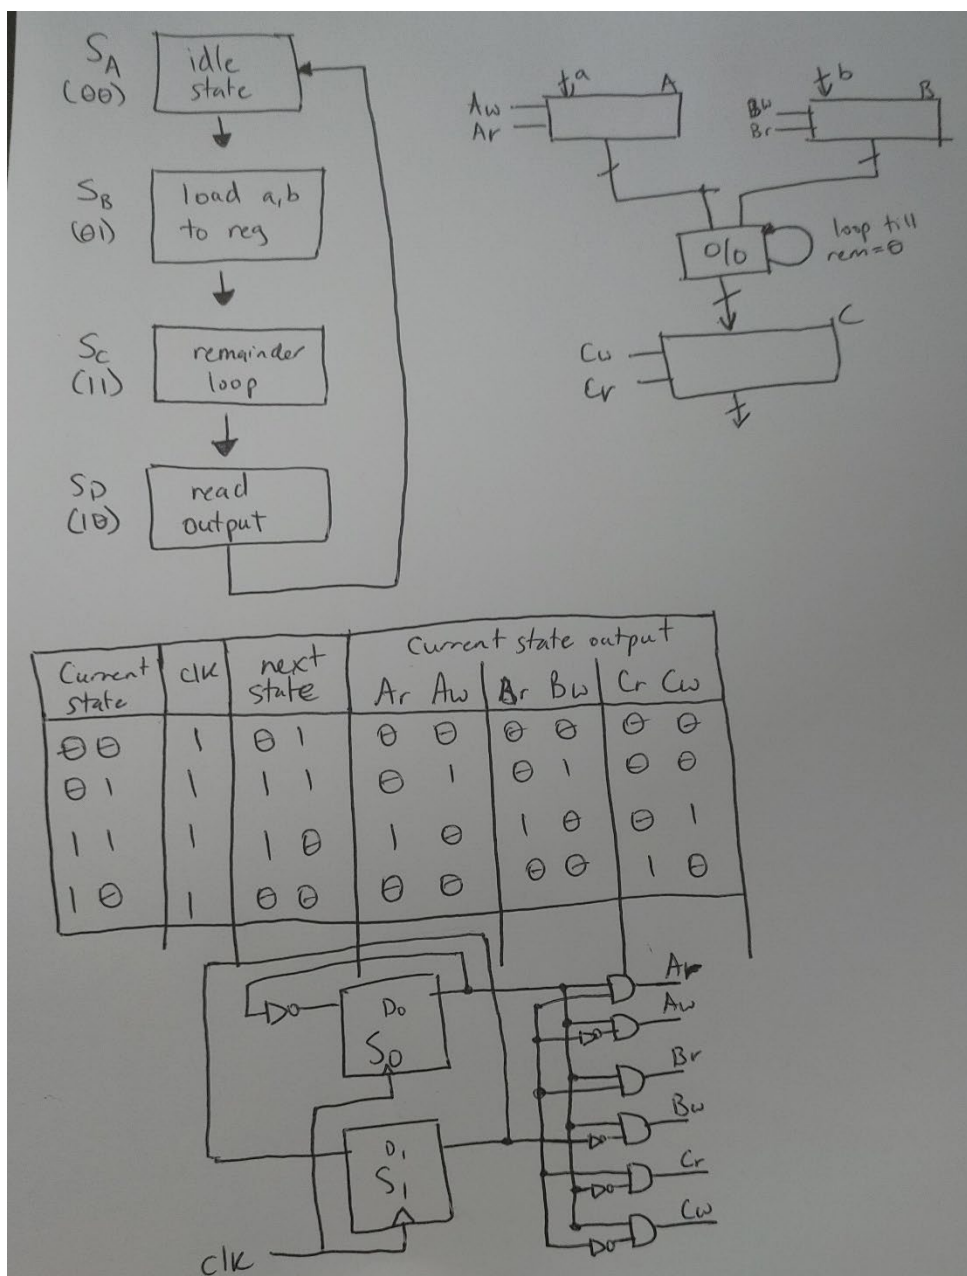 SA
(00)
idle
state
SB
(01)
load a,b
to reg
SC
(11)
remainder
loop
SD
(10)
read
output
a
A
Aw
Ar
b
B
Bw
Br
%
loop till
rem=0
C
Cw
Cr
Current state output
Current state
clk
next state
Ar Aw Br Bw Cr Cw
00 1 01 0 0 0 0 0 0
01 1 11 0 1 0 1 0 0
11 1 10 1 0 1 0 0 1
10 1 00 0 0 0 0 1 0
D0
S0
D1
S1
clk
Ar
Aw
Br
Bw
Cr
Cw